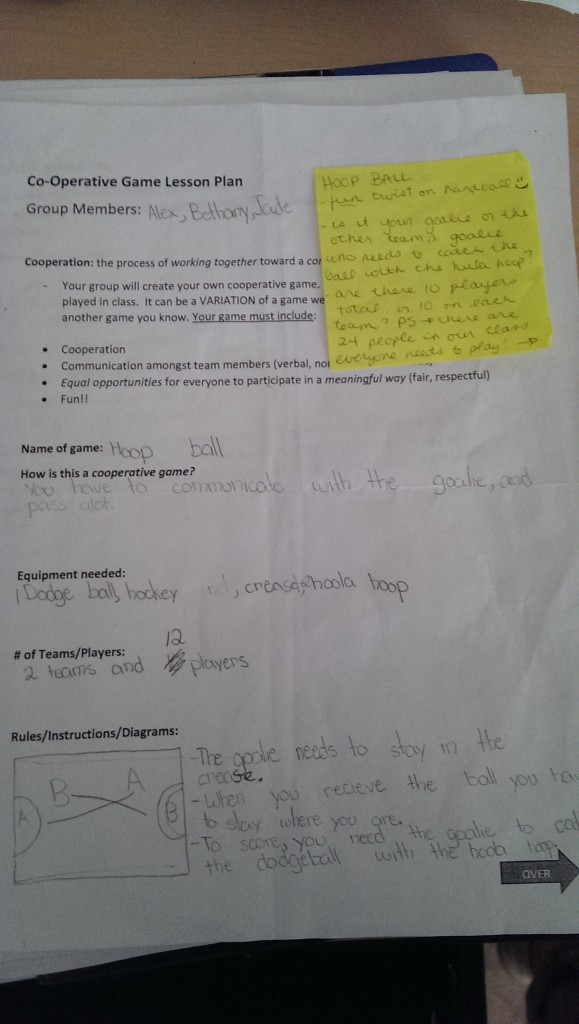 Co-Operative Game Lesson Plan
Group Members: Alex, Bethany, Jade
HOOP BALL
- fun twist on handball
- is it your goalie or the
other team's goalie
who needs to catch the
ball with the hula hoop?
- are there 10 players
total or 10 on each
team? PS → there are
24 people in our class
everyone needs to play! →
Cooperation: the process of working together toward a
- Your group will create your own cooperative game.
played in class. It can be a VARIATION of a game we
another game you know. Your game must include:
• Cooperation
• Communication amongst team members (verbal,
• Equal opportunities for everyone to participate in a meaningful way (fair, respectful)
• Fun!!
Name of game: Hoop ball
How is this a cooperative game?
You have to communicate with the goalie, and
pass alot.
Equipment needed:
1 Dodge ball, hockey creased, hoola hoop
# of Teams/Players:
12
2 teams and players
Rules/Instructions/Diagrams:
A B A B
- The goalie needs to stay in the
crease.
- When you recieve the ball you
to stay where you are.
- To score, you need the goalie to
the dodgeball with the hoola hoop.
OVER